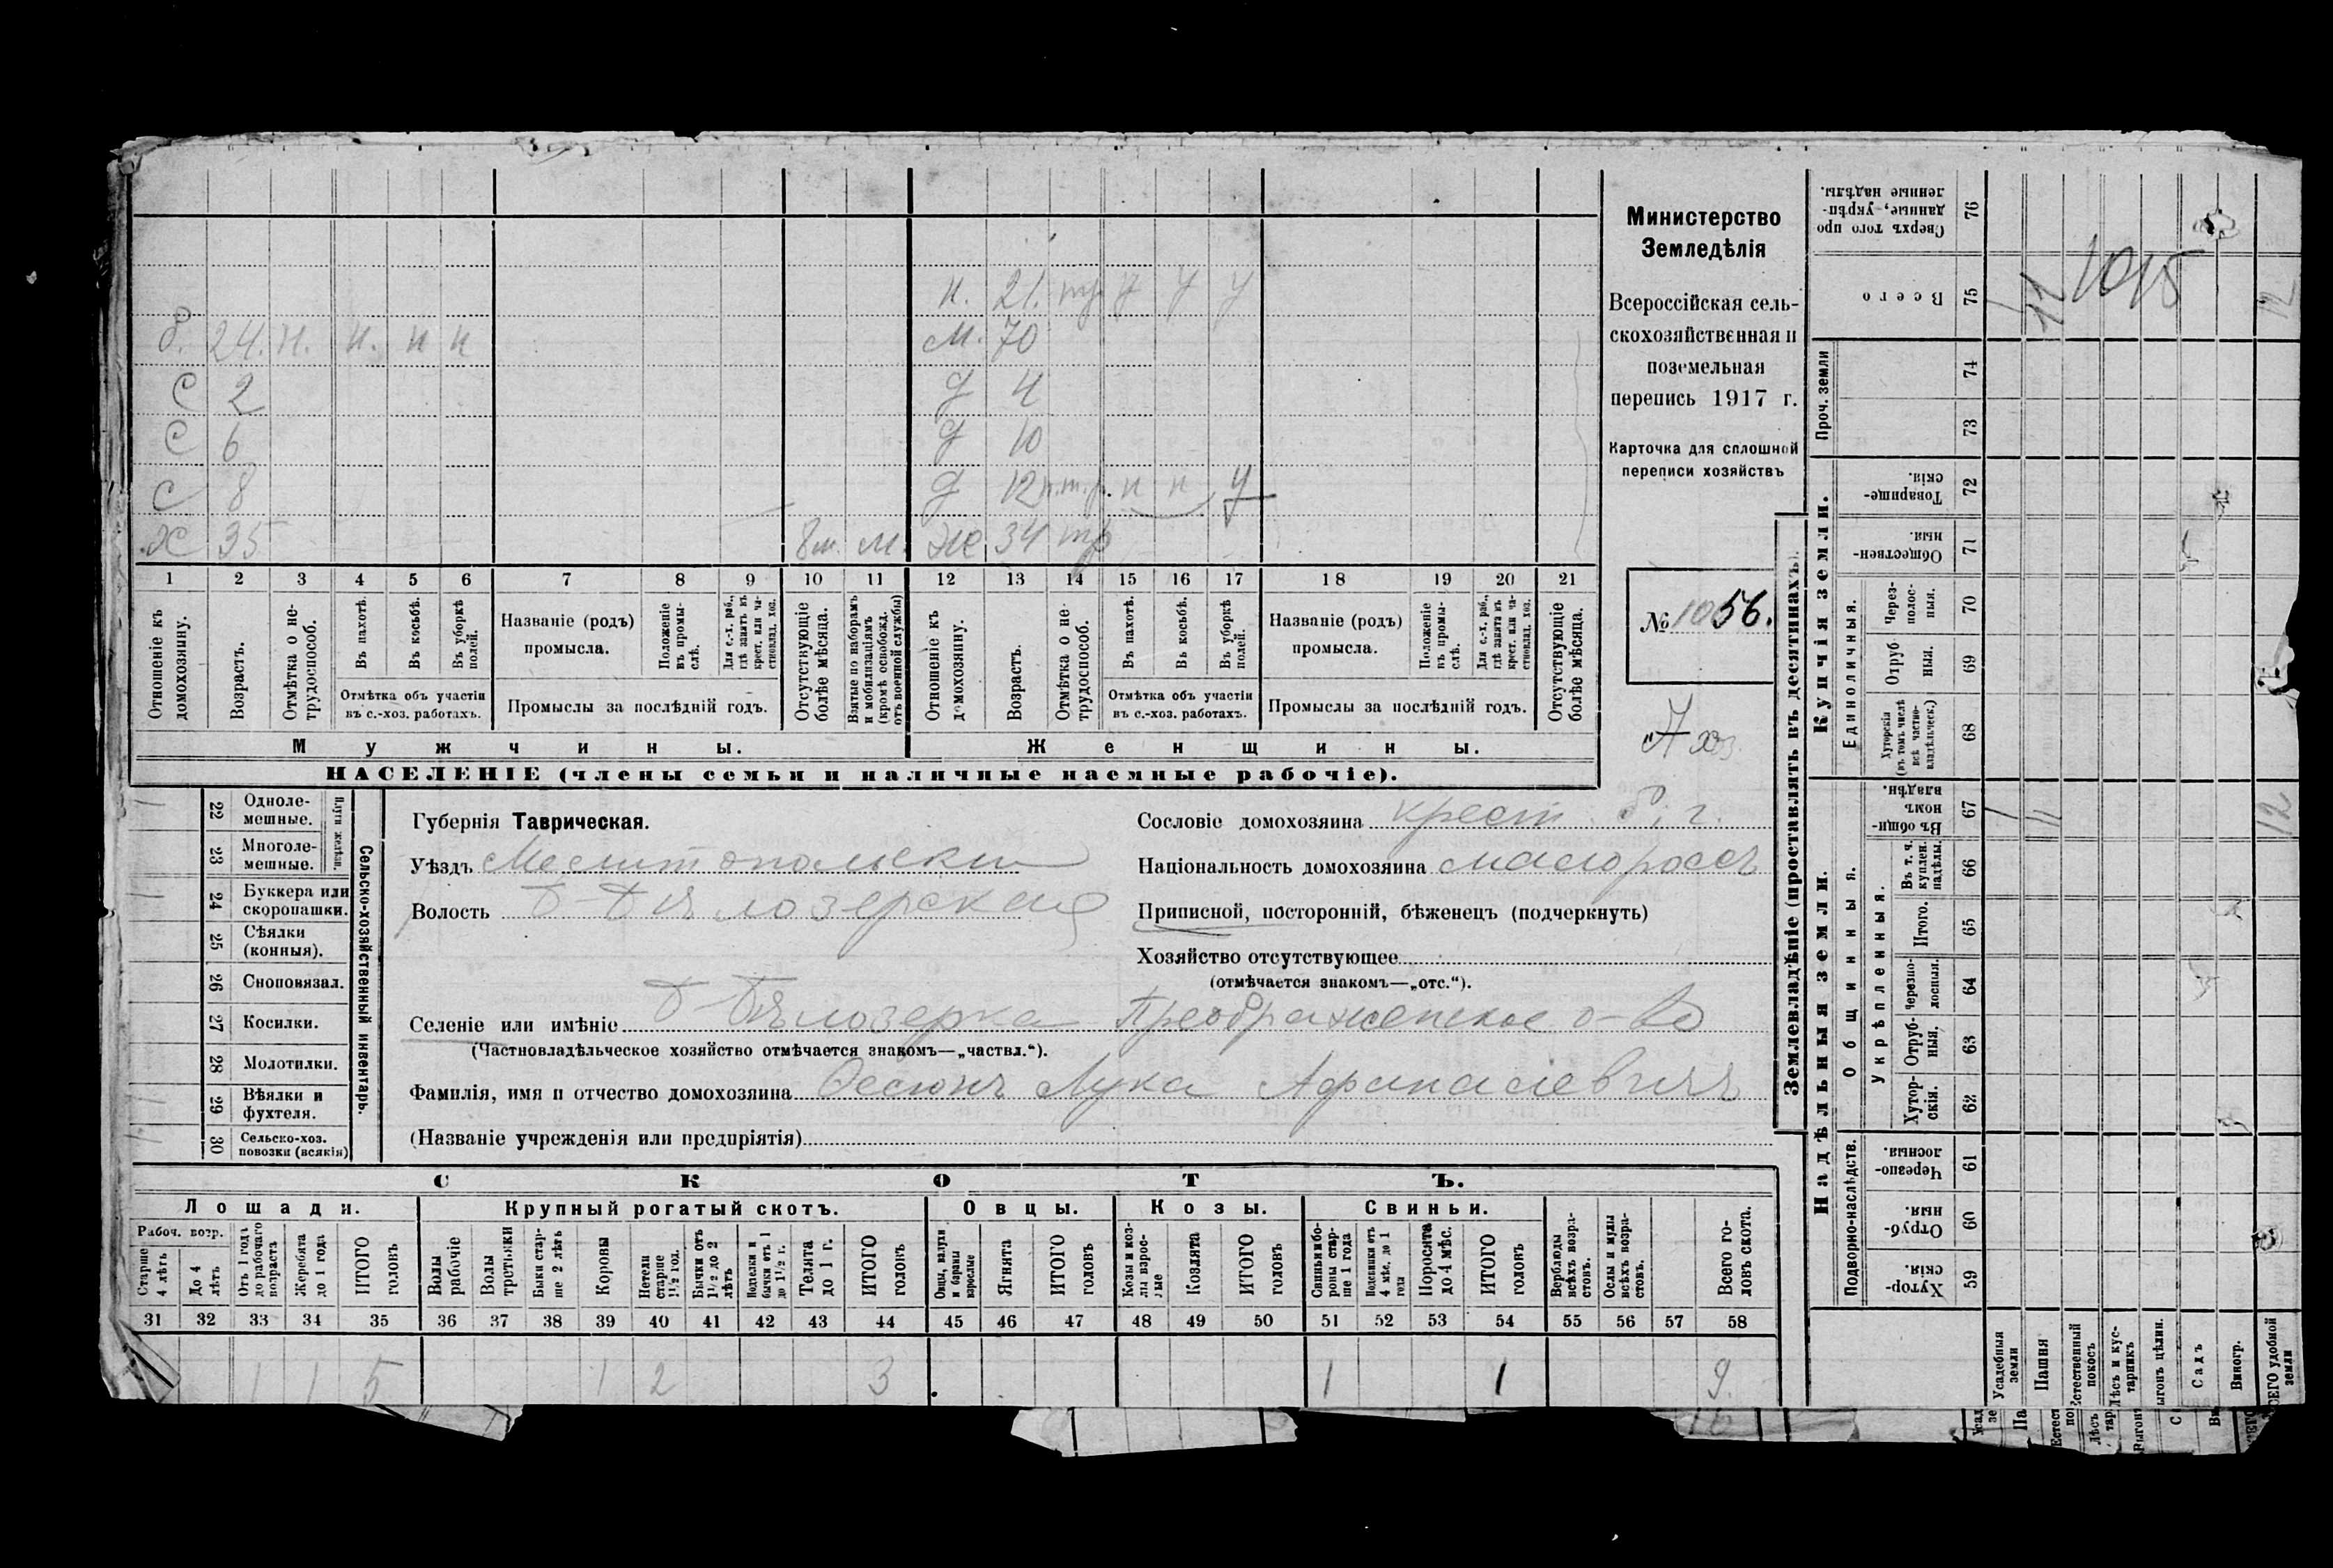 н. 21. тр у у у
б. 24. н. н. н н
м. 70
с 2
д 4
с 6
д 10
с 8
д 12 п.т.р. н н у
х 35
8 м. м.
же 34 тр
1 2 3 4 5 6 7 8 9 10 11 12 13 14 15 16 17 18 19 20 21
Отношеніе къ домохозяину.
Возрастъ.
Отмѣтка о нетрудоспособ.
Въ пахотѣ.
Въ косьбѣ.
Въ уборкѣ полей.
Отмѣтка объ участіи въ с.-хоз. работахъ.
Названіе (родъ) промысла.
Положеніе въ промыслѣ.
Для с.-х. раб., гдѣ занятъ въ крест. или частновлад. хоз.
Промыслы за послѣдній годъ.
Отсутствующіе болѣе мѣсяца.
Взятые по наборамъ и мобилизаціямъ (кромѣ освобожд. отъ военной службы)
Отношеніе къ домохозяину.
Возрастъ.
Отмѣтка о нетрудоспособ.
Въ пахотѣ.
Въ косьбѣ.
Въ уборкѣ полей.
Отмѣтка объ участіи въ с.-хоз. работахъ.
Названіе (родъ) промысла.
Положеніе въ промыслѣ.
Для с.-х. раб., гдѣ занята въ крест. или частновлад. хоз.
Промыслы за послѣдній годъ.
Отсутствующіе болѣе мѣсяца.
Мужчины.
Женщины.
НАСЕЛЕНІЕ (члены семьи и наличные наемные рабочіе).
Министерство
Земледѣлія
Всероссійская сель-
скохозяйственная и
поземельная
перепись 1917 г.
Карточка для сплошной
переписи хозяйствъ
№ 1056.
хоз.
22 Одноле-
мешные.
23 Многоле-
мешные.
Плуги желѣзн.
24 Буккера или
скоропашки.
25 Сѣялки
(конныя).
26 Сноповязал.
27 Косилки.
28 Молотилки.
29 Вѣялки и
фухтеля.
30 Сельско-хоз.
повозки (всякія)
Сельско-хозяйственный инвентарь.
Губернія Таврическая.
Уѣздъ Мелитопольски
Волость Б-Бѣлозерская
Селеніе или имѣніе Б-Бѣлозерка Преображенское о-во
(Частновладѣльческое хозяйство отмѣчается знакомъ—„частвл.“).
Фамилія, имя и отчество домохозяина Осеюкъ Лука Афанасіевичъ
(Названіе учрежденія или предпріятія)
Сословіе домохозяина крест
Національность домохозяина малороссъ
Приписной, посторонній, бѣженецъ (подчеркнуть)
Хозяйство отсутствующее
(отмѣчается знакомъ—„отс.“).
СКОТЪ.
Лошади.
Крупный рогатый скотъ.
Овцы.
Козы.
Свиньи.
Рабоч. возр.
Старше 4 лѣтъ
До 4 лѣтъ
Отъ 1 года до рабочаго возраста
Жеребята до 1 года
ИТОГО головъ
Волы рабочіе
Волы третьяки
Быки старше 2 лѣтъ
Коровы
Нетели старше 1½ год.
Бычки отъ 1½ до 2 лѣтъ
Подтелки и бычки отъ 1 до 1½ г.
Телята до 1 г.
ИТОГО головъ
Овцы, валухи и бараны взрослые
Ягнята
ИТОГО головъ
Козы и козлы взрослые
Козлята
ИТОГО головъ
Свиньи и бороны старше 1 года
Подсвинки отъ 4 мѣс. до 1 года
Поросята до 4 мѣс.
ИТОГО головъ
Верблюды всѣхъ возрастовъ.
Ослы и мулы всѣхъ возрастовъ.
Всего головъ скота.
31 32 33 34 35 36 37 38 39 40 41 42 43 44 45 46 47 48 49 50 51 52 53 54 55 56 57 58
1 1 5 1 2 3 1 1 9.
Землевладѣніе (проставлять въ десятинахъ).
Купчія земли.
Надѣльныя земли.
Проч. земли
Единоличныя.
Общинныя.
Укрѣпленныя.
Подворно-наслѣдств.
Сверхъ того проданные, укрѣпленные надѣлы. 76
Всего 75
74
73
Товарищескія. 72
Общественныя. 71
Черезполосныя. 70
Отрубныя. 69
Хуторскія (въ томъ числѣ всѣ частновладѣльческ.) 68
Въ общинномъ владѣн. 67
Въ т. ч. куплен. надѣлы. 66
Итого. 65
Черезполосныя. 64
Отрубныя. 63
Хуторскія. 62
Черезполосныя. 61
Отрубныя. 60
Хуторскія. 59
Усадебныя земли
Пашня
Естественный покосъ
Лѣсъ и кустарникъ
Выгонъ цѣлин.
Садъ
Виногр.
ВСЕГО удобной земли
1 11 1015 12
1 11 12